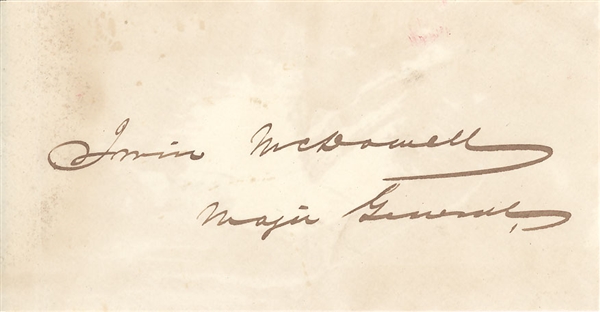 Irvin McDowell
Major General,